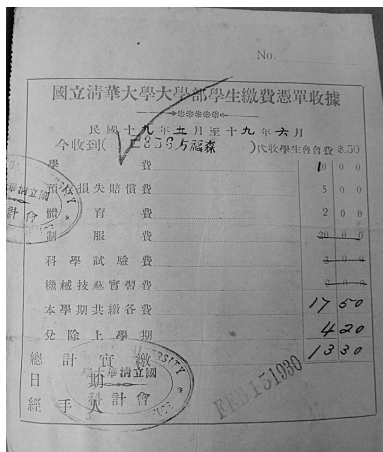 No.
國立清華大學大學部學生繳費憑單收據
民國十九年二月至十九年六月
今收到( 356 馬福森 )代收學生會會費 3.50
學 費 10 0 0
預存損失賠償費 5 0 0
體 育 費 2 0 0
制 服 費 20 0 0
科學試驗費 3 0 0
機械技藝實習費 2 0 0
本學期共繳各費 17 50
兌除上學期 4 20
總計實繳 13 30
日 期 FEB 15 1930
經手人
國立清華大學
會計科